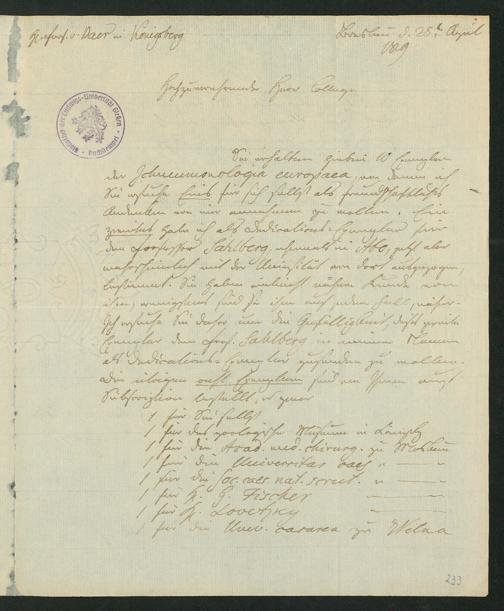 H. Prof. v. Baer in Königsberg
Breslau d. 28t. April
1829
Hochzuverehrender Herr College
Sie erhalten hiebei 10 Exemplare
der Ichneumonologia europaea, von denen ich
Sie ersuche Eins für sich selbst als freundschaftliches
Andenken von mir annehmen zu wollen. Ein
zweites habe ich als Dedications-Exemplar für
den Professor Sahlberg, ehemals in Abo, jetzt aber
wahrscheinlich mit der Universität von dort
bestimmt. Sie haben nähere Kunde von
ihm, wenigstens sind Sie ihm auf jeden Fall näher.
Ich ersuche Sie daher um die Gefälligkeit, dies zweite
Exemplar dem Prof. Sahlberg in meinem Namen
als Dedications-Exemplar zusenden zu wollen.
Die übrigen acht Exemplare sind von Ihnen auf
Subscription bestellt, und zwar
1 für Sie selbst
1 für das zoologische Museum in Königsb
1 für die Acad. med. chirurg. zu Moskau
1 für die Universitas caes " —
1 für die Soc. caes. nat. scrut. " —
1 für H. G. Fischer —
1 für H. Lovetzky —
1 für die Univ. caesarea zu Wilna
233